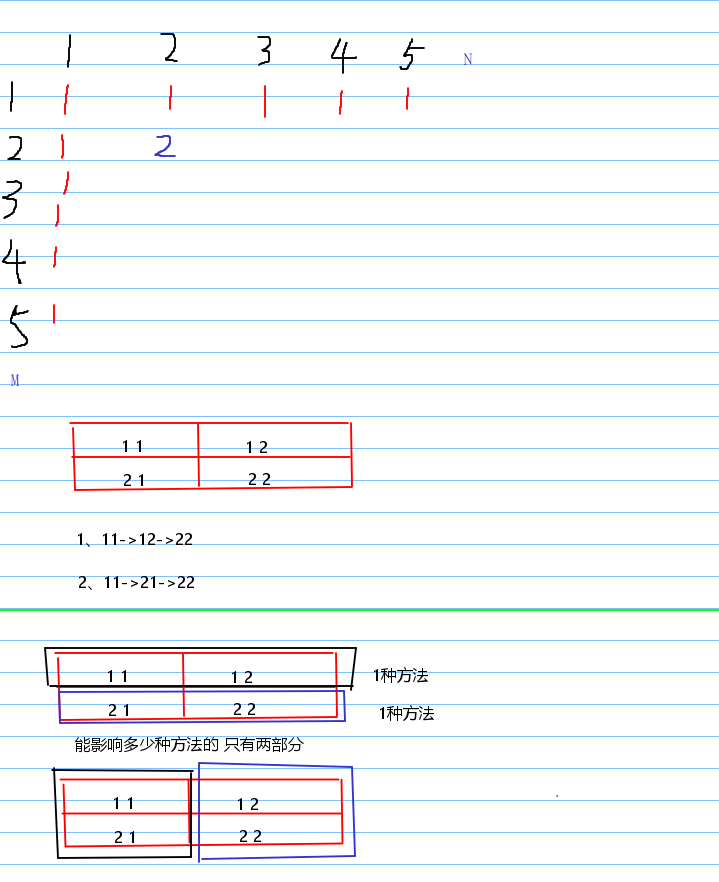 1 2 3 4 5 N
1 1 1 1 1 1
2 1 2
1
3 1
4 1
5 1
M
1 1 1 2
2 1 2 2
1、11->12->22
2、11->21->22
1 1 1 2 1种方法
2 1 2 2 1种方法
能影响多少种方法的 只有两部分
1 1 1 2
2 1 2 2